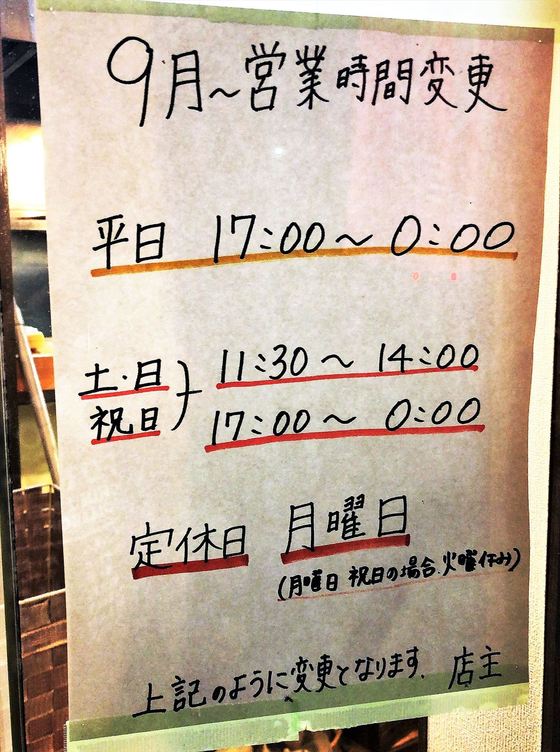 9月～営業時間変更
平日 17:00～0:00
土・日
祝日
11:30～14:00
17:00～0:00
定休日 月曜日
(月曜日 祝日の場合、火曜休み)
上記のように変更となります、店主